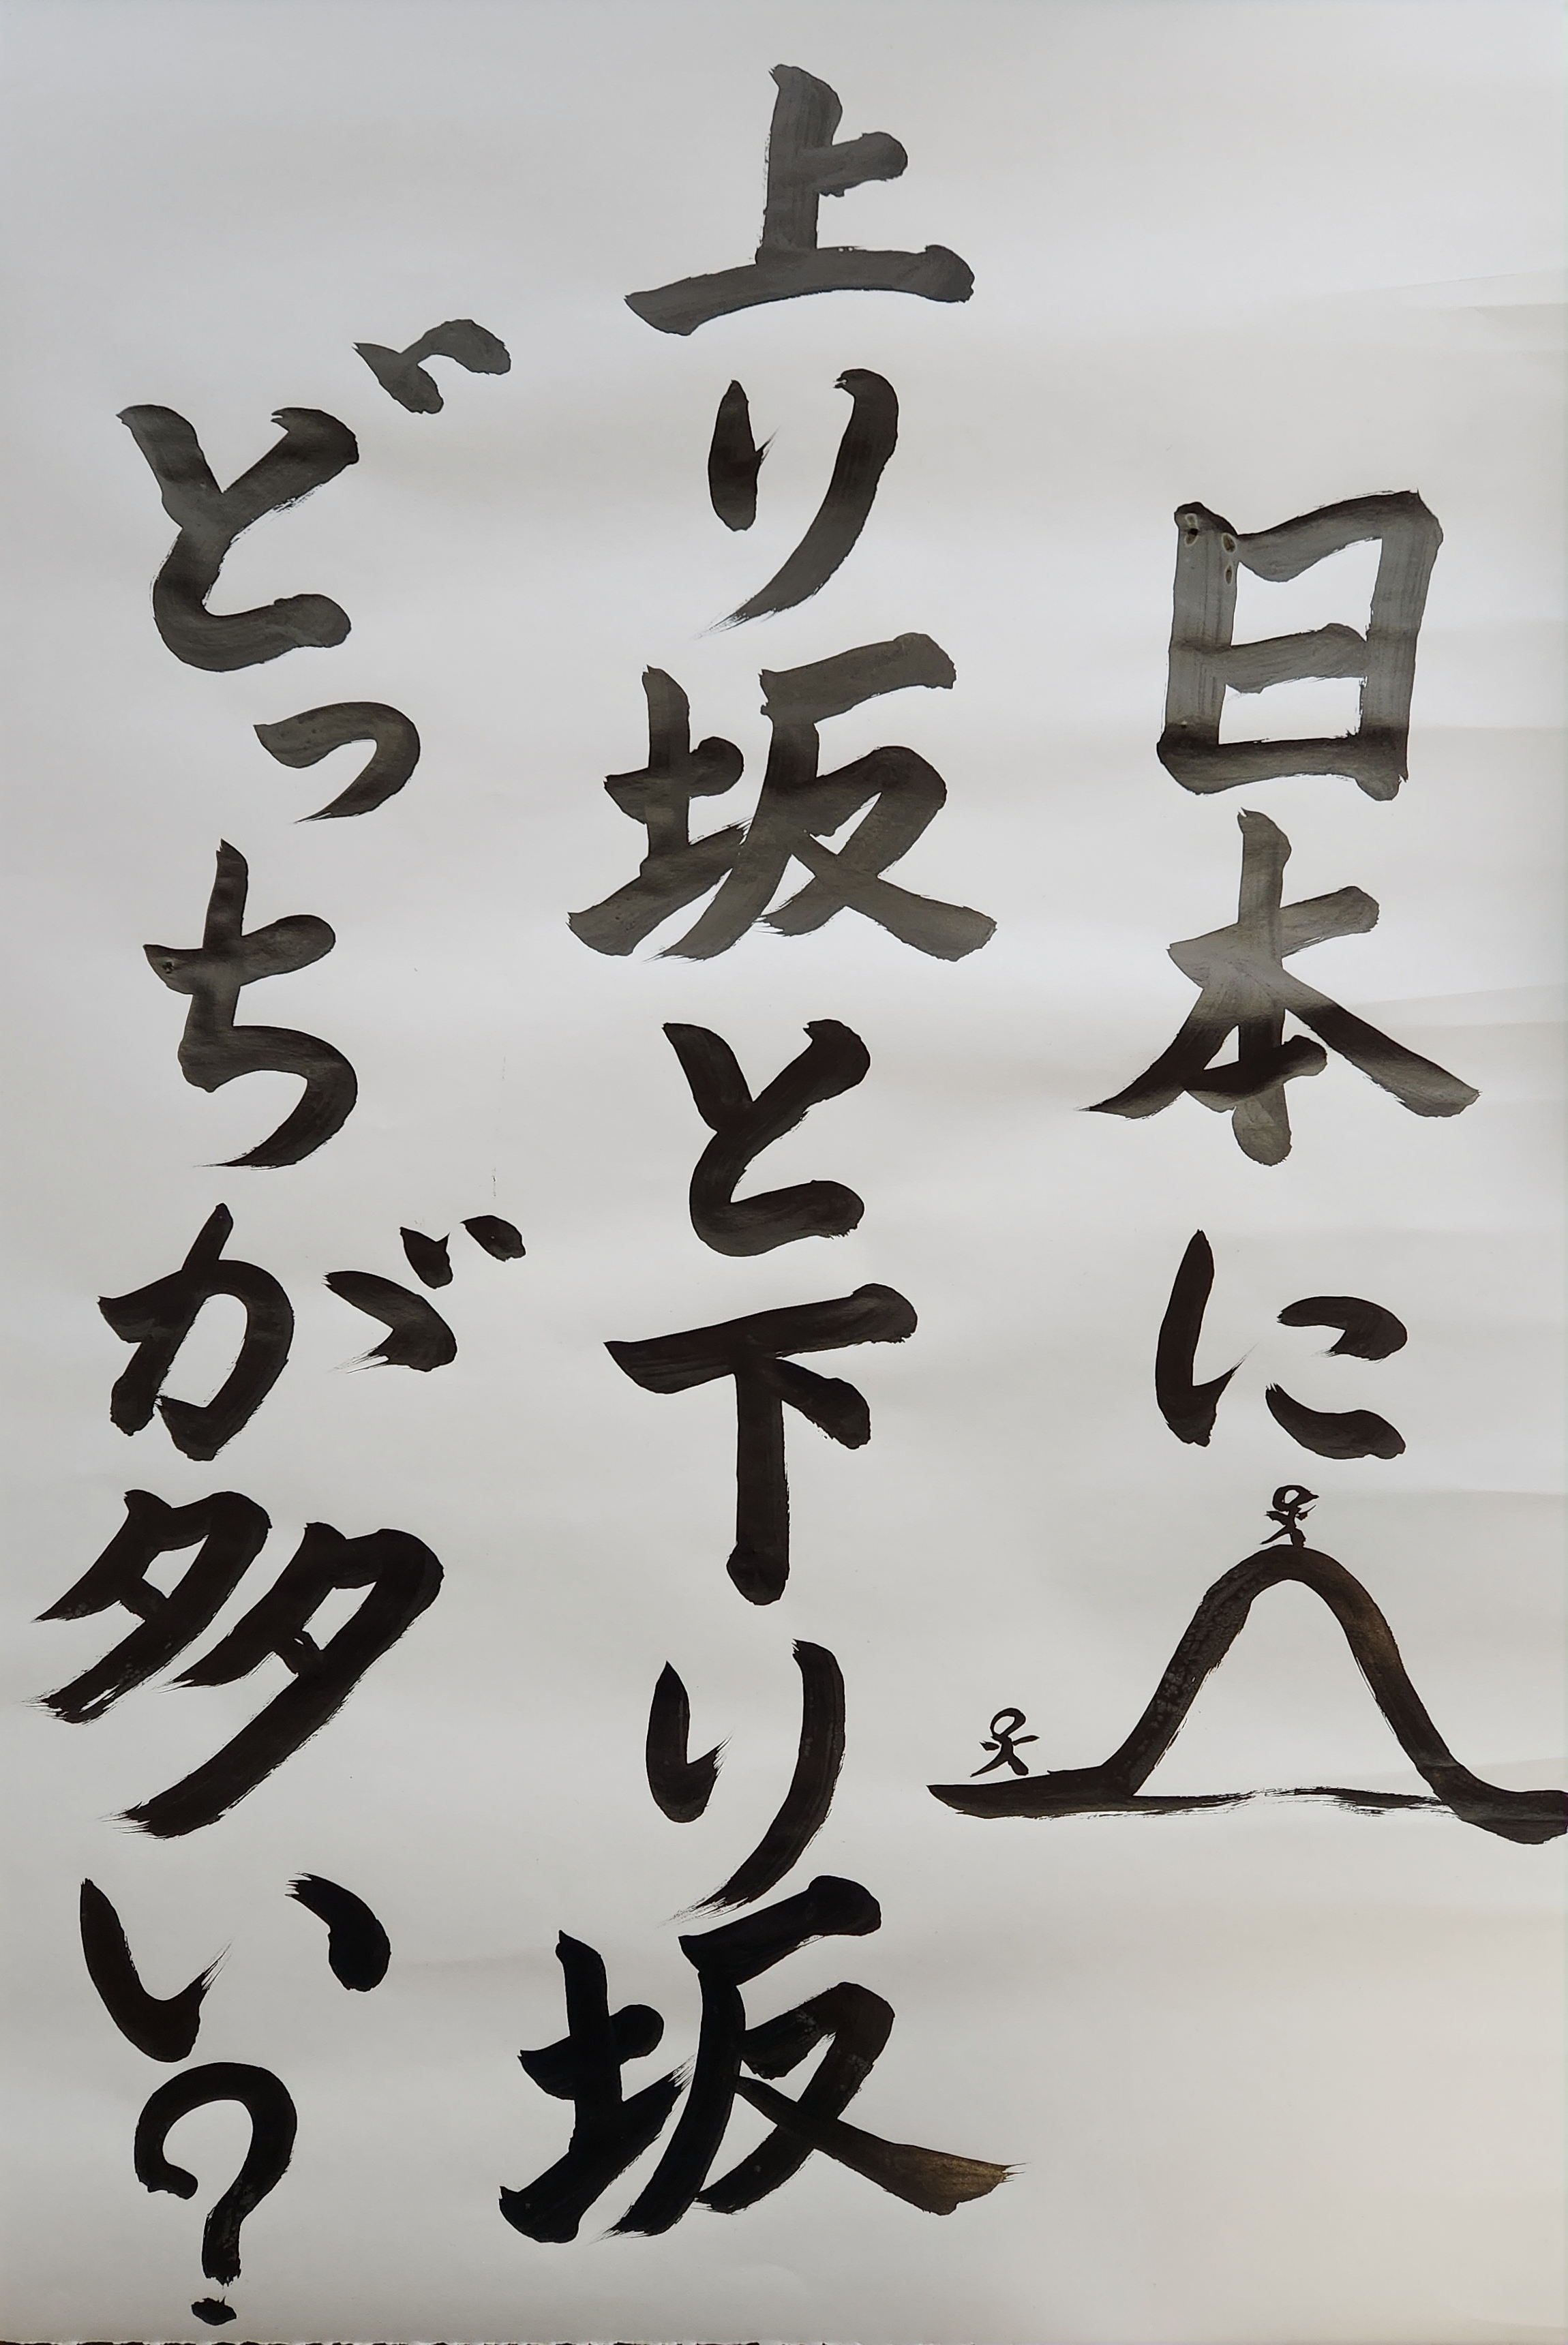 日本に
上り坂と下り坂
どっちが多い?